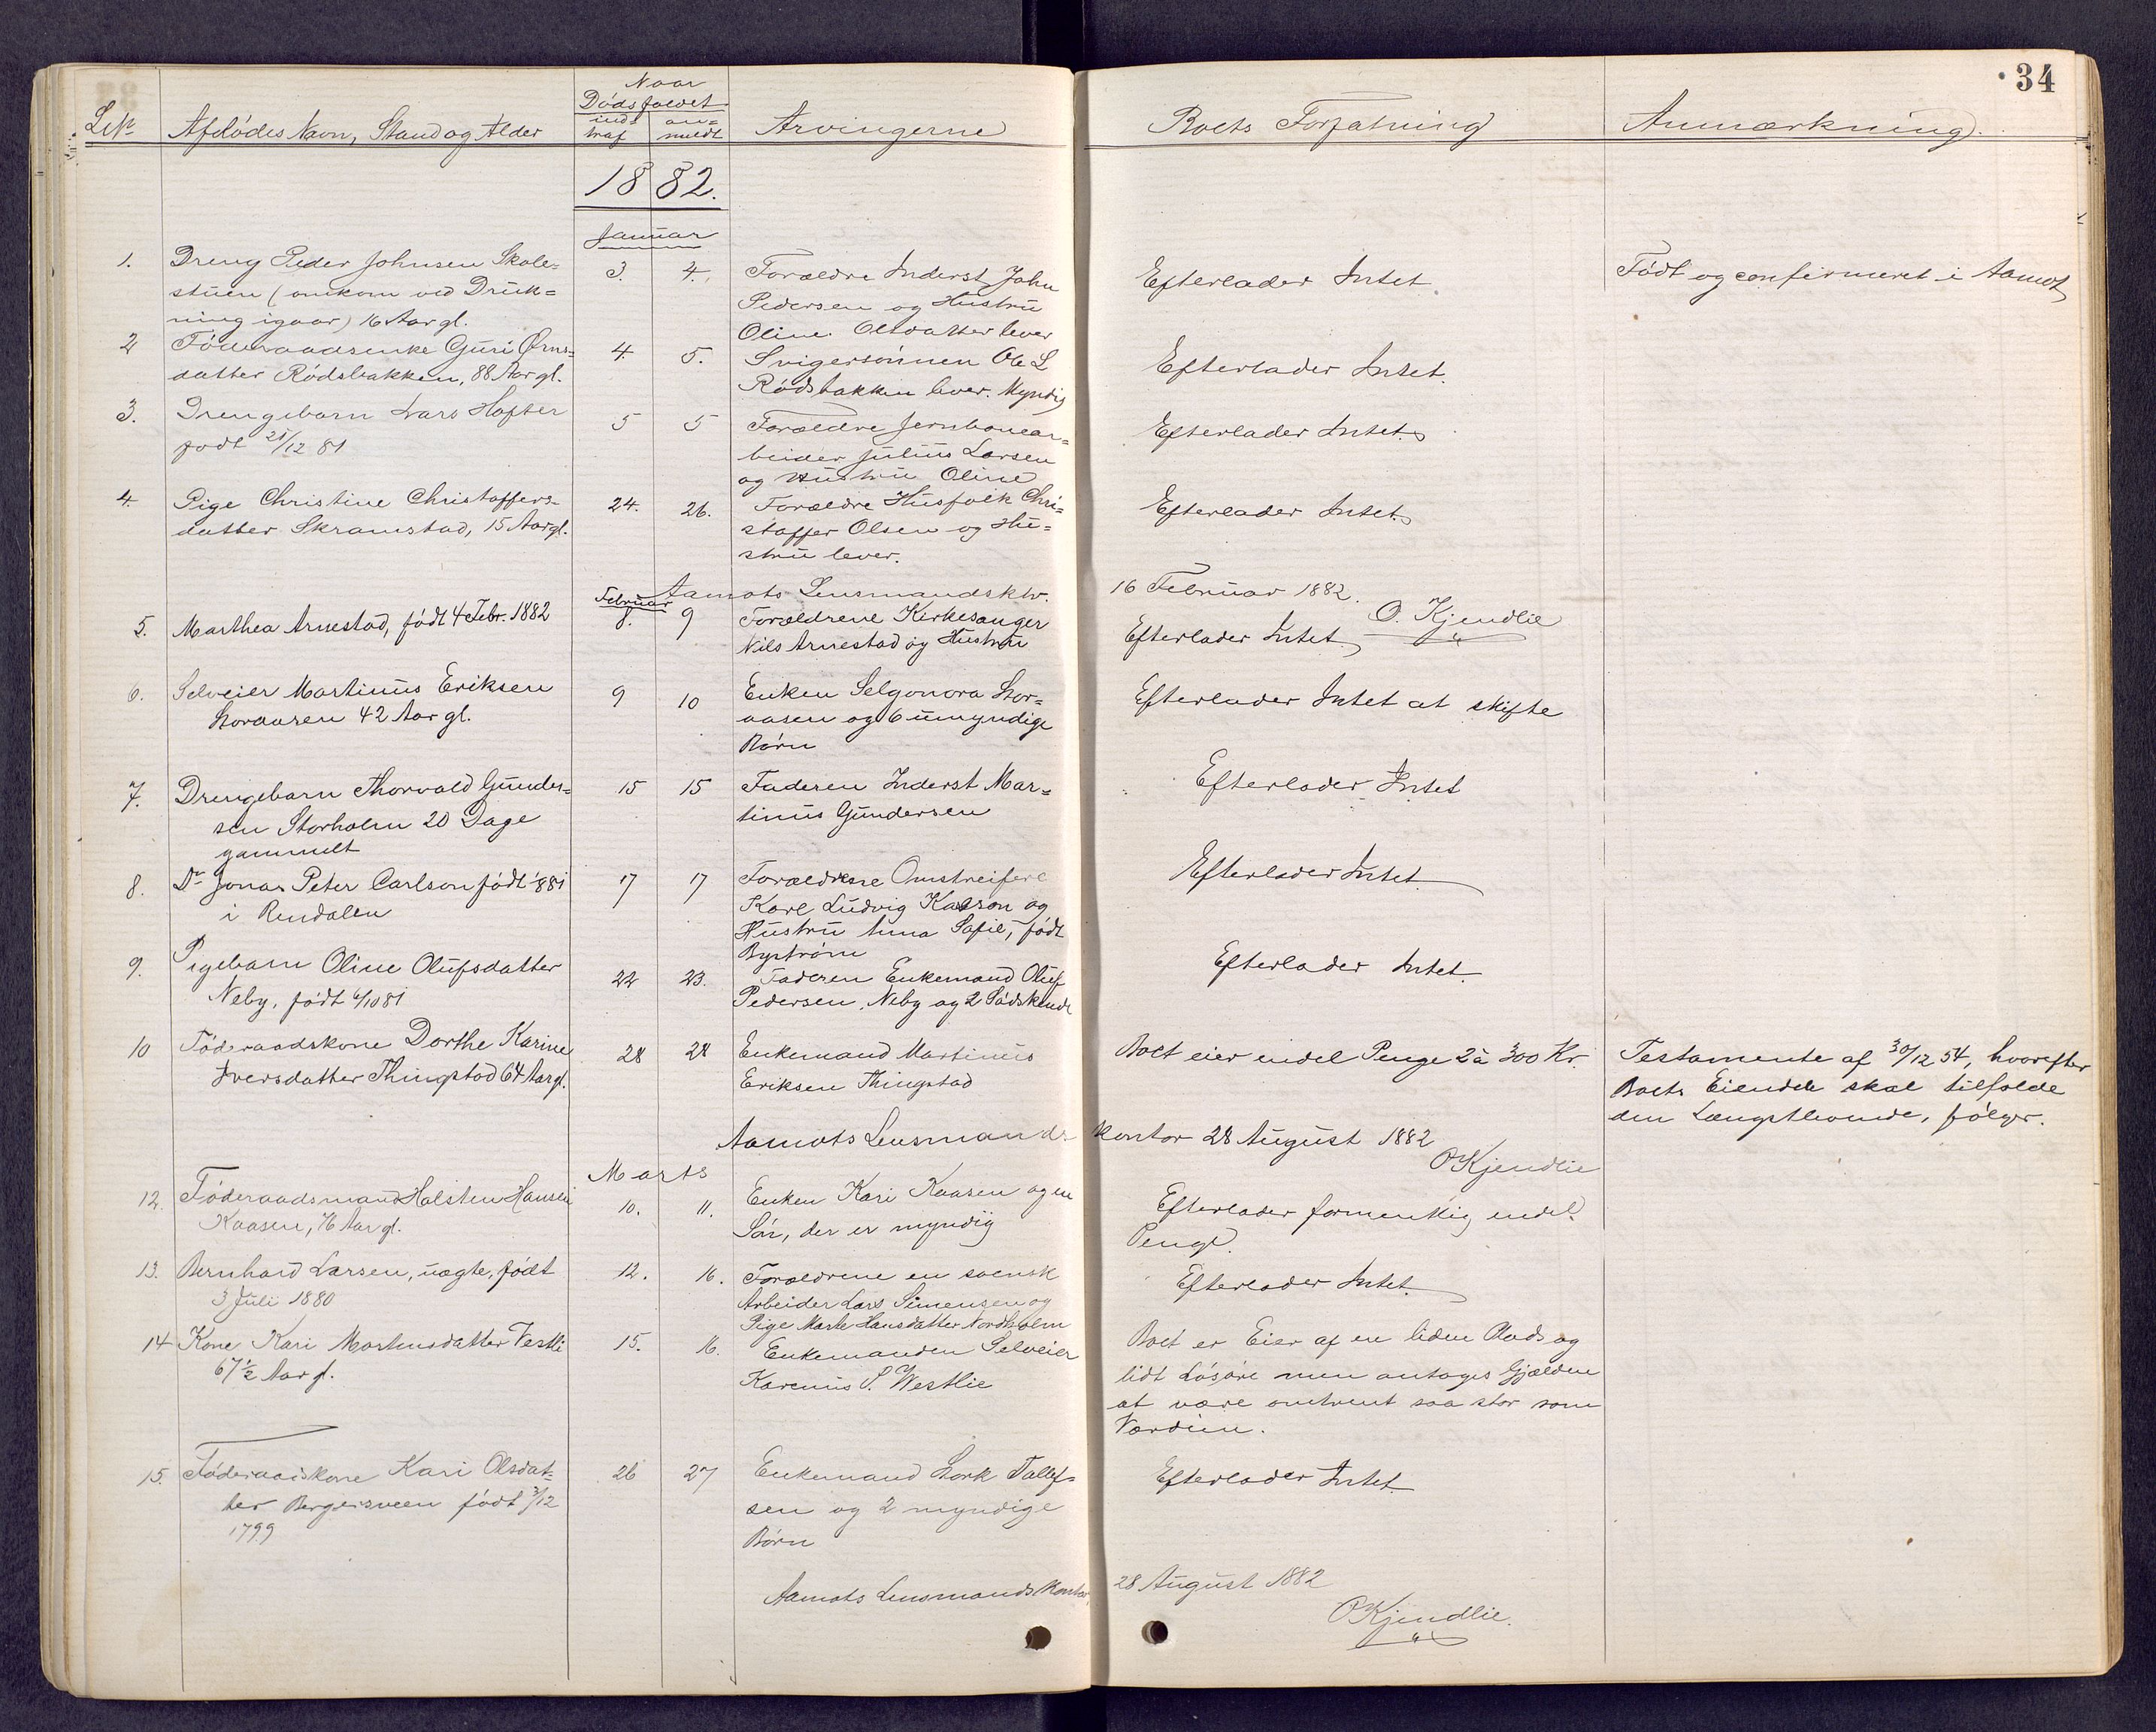 34
Naar
Dødsfaldet
LNo Afdødes Navn, Stand og Alder ind-traf an-meldt Arvingerne Boets Forfatning Anmærkning.
1882.
Januar
1. Dreng Peder Johnsen Skole= 3. 4. Forældre Inderst John Efterlader Intet. Født og confirmeret i Aamot
stuen (omkom ved Druk= Pedersen og Hustru
ning igaar) 16 Aar gl. Oline Olsdatter lever
2 Föderaadsenke Guri Ørns= 4. 5. Svigersönnen Ole L Efterlader Intet.
datter Rödsbakken, 88 Aar gl. Rödsbakken lever. Myndig
3. Drengebarn Lars Hafter 5 5 Forældre Jernbanear= Efterlader Intet.
født 25/12 81 beider Julius Larsen
og Hustru Oline
4. Pige Christine Christoffers= 24. 26. Forældre Husfolk Chri= Efterlader Intet.
datter Skramstad, 15 Aar gl. stoffer Olsen og Hu=
stru lever.
Aamots Lensmandsktr. 16 Februar 1882.
O. Kjendlie
Februar
5. Marthea Arnestad, født 4 Febr. 1882 8. 9 Forældrene Kirkesanger Efterlader Intet
Nils Arnestad og Hustru
6. Selveier Martinus Eriksen 9 10 Enken Selgonora Stor= Efterlader Intet at skifte
Storaasen 42 Aar gl. aasen og 6 umyndige
Börn
7. Drengebarn Thorvald Gunder= 15 15 Faderen Inderst Mar= Efterlader Intet
sen Storholm 20 Dage tinus Gundersen
gammelt
8. Do Jonas Peter Carlson født 1881 17 17 Forældrene Omstreifere Efterlader Intet
i Rendalen Karl Ludvig Karson og
Hustru Anna Sofie, født
Byström
9. Pigebarn Oline Olufsdatter 22 23. Faderen Enkemand Oluf Efterlader Intet
Neby, født 6/10 81 Pedersen, Neby og 2 Södskende
10 Föderaadskone Dorthe Karine 28 28 Enkemand Martinus Boet eier endel Penge 2 à 300 Kr. Testamente af 30/12 54, hvorefter
Iversdatter Thingstad 64 Aar gl. Eriksen Thingstad Boets Eiendele skal tilfalde
den Længstlevende, fölger.
Aamots Lensmandskontor 28 August 1882
OKjendlie
Marts
12. Föderaadsmand Halsten Hansen 10. 11. Enken Kari Kaasen og en Efterlader formentlig endel
Kaasen, 76 Aar gl. Sön, der er myndig Penge.
13. Bernhard Larsen, uægte, født 12. 16. Forældrene en svensk Efterlader Intet.
3 Juli 1880 Arbeider Lars Simensen og
Pige Marte Hansdatter Nordholm
14 Kone Kari Mortensdatter Vestli 15. 16. Enkemanden Selveier Boet er Eier af en liden Plads og
67 1/2 Aar gl. Karenus P. Westlie lidt Lösöre men antages Gjælden
at være omtrent saa stor som
Værdien.
15. Föderaadskone Kari Olsdat= 26 27 Enkemand Stork Tollef= Efterlader Intet.
ter Bergersveen født /12 sen og 2 myndige
1799 Börn
Aamots Lensmandskontor, 28 August 1882
OKjendlie.